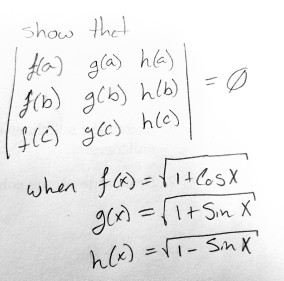 show that
| f(a) g(a) h(a) |
| f(b) g(b) h(b) | = ∅
| f(c) g(c) h(c) |
when f(x) = √1+CosX
g(x) = √1+Sin X
h(x) = √1- Sin X